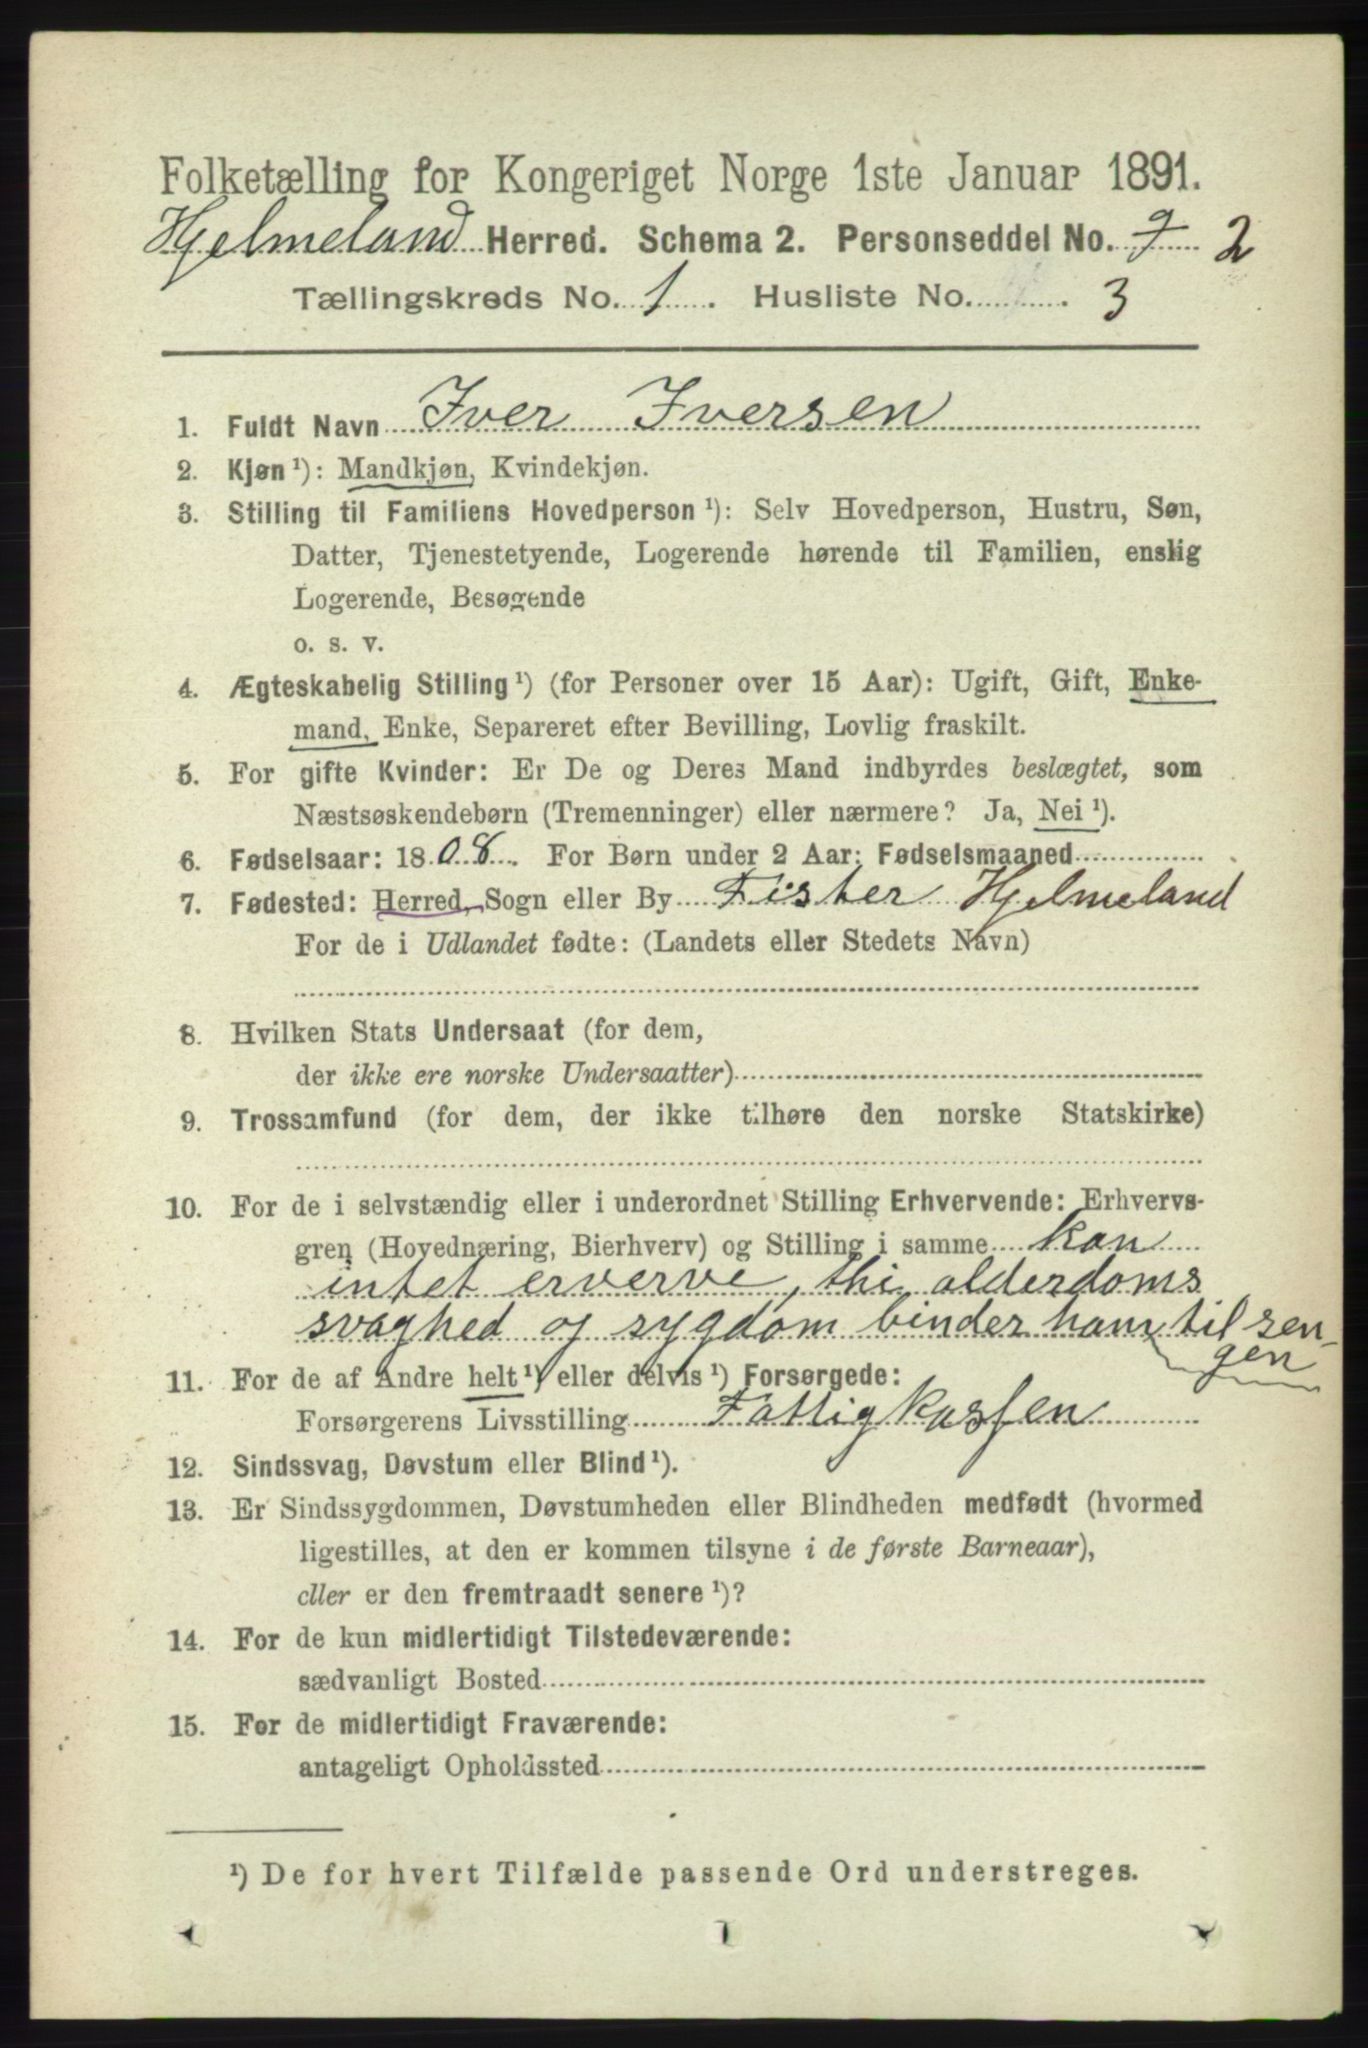 Folketælling for Kongeriget Norge 1ste Januar 1891.
Hjelmeland Herred. Schema 2. Personseddel No. 2
Tællingskreds No. 1. Husliste No. 3
1. Fuldt Navn Iver Iversen
2. Kjøn ¹): Mandkjøn, Kvindekjøn.
3. Stilling til Familiens Hovedperson ¹): Selv Hovedperson, Hustru, Søn,
Datter, Tjenestetyende, Logerende hørende til Familien, enslig
Logerende, Besøgende
o. s. v.
4. Ægteskabelig Stilling ¹) (for Personer over 15 Aar): Ugift, Gift, Enke-
mand, Enke, Separeret efter Bevilling, Lovlig fraskilt.
5. For gifte Kvinder: Er De og Deres Mand indbyrdes beslægtet, som
Næstsøskendebørn (Tremenninger) eller nærmere? Ja, Nei ¹).
6. Fødselsaar: 1808. For Børn under 2 Aar: Fødselsmaaned
7. Fødested: Herred, Sogn eller By Fister Hjelmeland
For de i Udlandet fødte: (Landets eller Stedets Navn)
8. Hvilken Stats Undersaat (for dem,
der ikke ere norske Undersaatter)
9. Trossamfund (for dem, der ikke tilhøre den norske Statskirke)
10. For de i selvstændig eller i underordnet Stilling Erhvervende: Erhvervs-
gren (Hovednæring, Bierhverv) og Stilling i samme kan
intet erverve, thi alderdoms
svaghed og sygdom binder ham til sen-
gen
11. For de af Andre helt ¹) eller delvis ¹) Forsørgede:
Forsørgerens Livsstilling Fattigkassen
12. Sindssvag, Døvstum eller Blind ¹).
13. Er Sindssygdommen, Døvstumheden eller Blindheden medfødt (hvormed
ligestilles, at den er kommen tilsyne i de første Barneaar),
eller er den fremtraadt senere ¹)?
14. For de kun midlertidigt Tilstedeværende:
sædvanligt Bosted
15. For de midlertidigt Fraværende:
antageligt Opholdssted
¹) De for hvert Tilfælde passende Ord understreges.